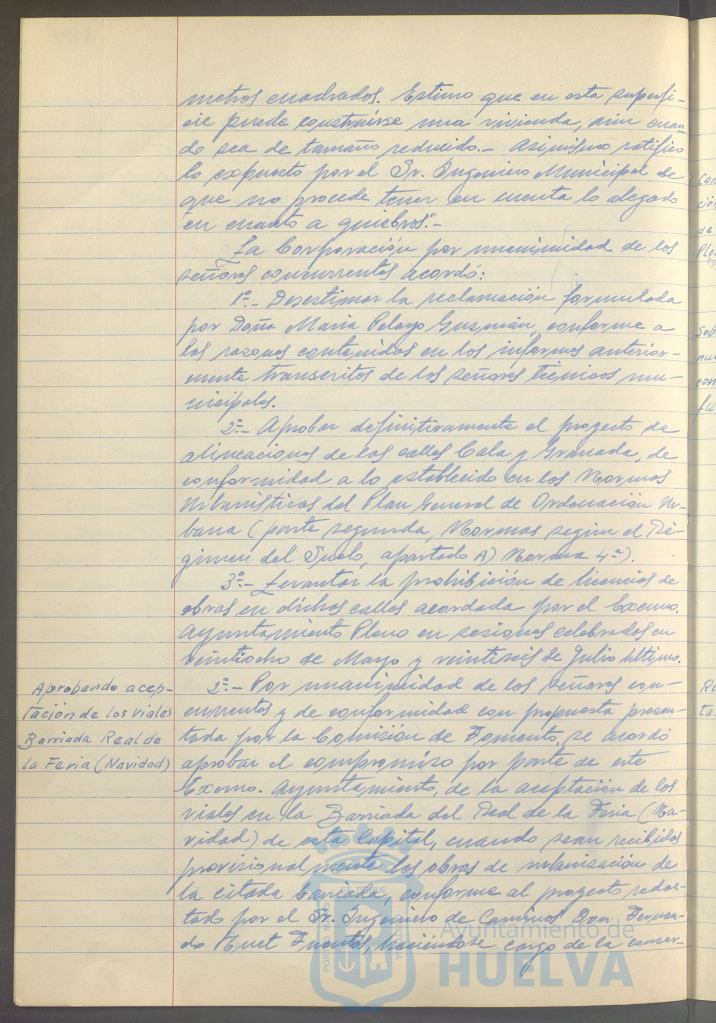 metros cuadrados. Estimo que en esta superfi-
cie puede construirse una vivienda, aun cuan-
do sea de tamaño reducido.- Asimismo ratifico
lo expuesto por el Sr. Ingeniero Municipal de
que no procede tener en cuenta lo alegado
en cuanto a quiebros."-
La Corporación por unanimidad de los
señores concurrentes acordó:
1º.- Desestimar la reclamación formulada
por Doña Maria Pelayo Guzmán, conforme a
las razones contenidas en los informes anterior-
mente transcritos de los señores técnicos mu-
nicipales.
2º.- Aprobar definitivamente el proyecto de
alineaciones de las calles Cala y Granada, de
conformidad a lo establecido en las Normas
Urbanísticas del Plan General de Ordenación Ur-
bana (parte segunda, Normas según el Ré-
gimen del Suelo, apartado A) Norma 4ª).
3º.- Levantar la prohibición de licencias de
obras en dichas calles acordada por el Excmo.
Ayuntamiento Pleno en sesiones celebradas en
veintiocho de Mayo y veintiseis de Julio último.
Aprobando acep-
tación de los viales
Barriada Real de
la Feria (Navidad)
2º.- Por unanimidad de los señores con-
currentes y de conformidad con propuesta presen-
tada por la Comisión de Fomento, se acordó
aprobar el compromiso por parte de este
Excmo. Ayuntamiento, de la aceptación de los
viales en la Barriada del Real de la Feria (Na-
vidad) de esta Capital, cuando sean recibidas
provisionalmente las obras de urbanización de
la citada barriada, conforme al proyecto redac-
tado por el Sr. Ingeniero de Caminos Don Fernan-
do haciéndose cargo de la conser-
Ayuntamiento de
HUELVA